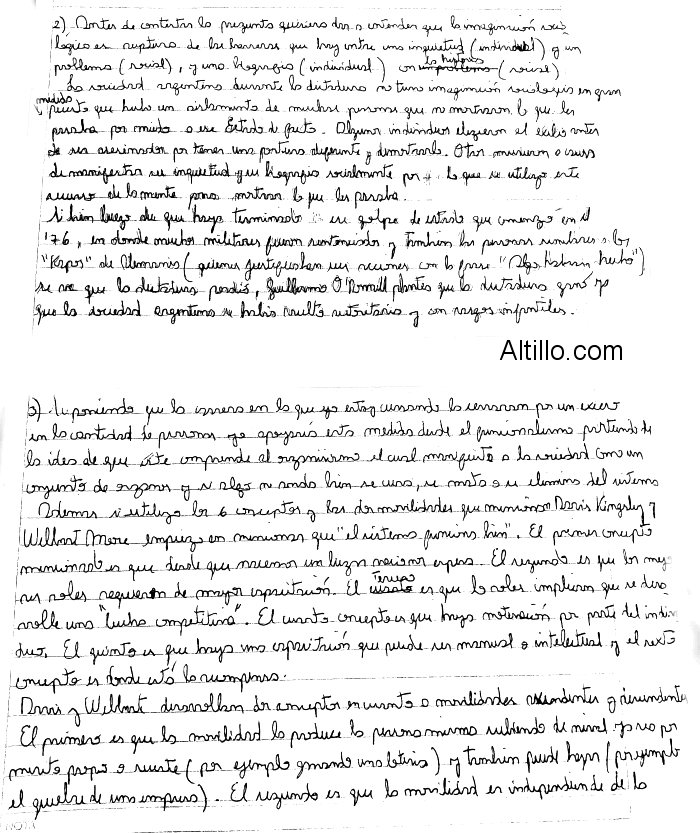 2) Antes de contestar la pregunta quisiera dar a entender que la imaginación soció-
lógica es ruptura de las barreras que hay entre una inquietud (individual) y un
problema (social), y una biografía (individual) con la historia (social)
La sociedad argentina durante la dictadura no tuvo imaginación sociológica en gran
medida puesto que hubo un aislamiento de muchas personas que no mostraron lo que les
pasaba por miedo a ese Estado de facto. Algunos individuos eligieron el exilio antes
de ser asesinados por tener una postura diferente y demostrarla. Otros murieron a causa
de manifestar su inquietud y su biografía socialmente por lo que se utilizo este
recurso de la mente para mostrar lo que les pasaba.
Si bien luego de que haya terminado ese golpe de estado que comenzó en el
'76, en donde muchos militares fueron sentenciados y también las personas similares a los
"Kapos" de Alemania (quienes justificaban sus acciones con la frase "Algo habrán hecho")
se ve que la dictadura perdió, Guillermo O'Donnell plantea que la dictadura ganó ya
que la sociedad argentina se había vuelto autoritaria y con rasgos infantiles.
Altillo.com
3) Suponiendo que la carrera en la que yo estoy cursando la cerraran por un exceso
en la cantidad de personas yo apoyaría esta medida desde el funcionalismo partiendo de
la idea de que este comprende al organicismo el cual manifiesta a la sociedad como un
conjunto de órganos y si algo no anda bien se cura, se mata o se elimina del sistema
Ademas si utilizo los 6 conceptos y las dos movilidades que mencionan Davis Kingsley y
Wilbert More empiezo en mencionar que "el sistema funciona bien". El primer concepto
mencionado es que desde que nacemos un lugar nos espera. El segundo es que los mejo-
res roles requieren de mayor capacitación. El Tercero es que los roles implican que se desa-
rrolle una "lucha competitiva". El cuarto concepto es que haya motivación por parte del indivi-
duo. El quinto es que haya una capacitación que puede ser manual o intelectual y el sexto
concepto es donde está la recompensa.
Davis y Wilbert desarrollan dos conceptos en cuanto a movilidades ascendentes y descendentes
El primero es que la movilidad la produce la persona misma subiendo de nivel ya sea por
merito propio o suerte (por ejemplo ganando una loteria) y tambien puede bajar (por ejemplo
el quiebre de una empresa). El segundo es que la movilidad es independiente de la